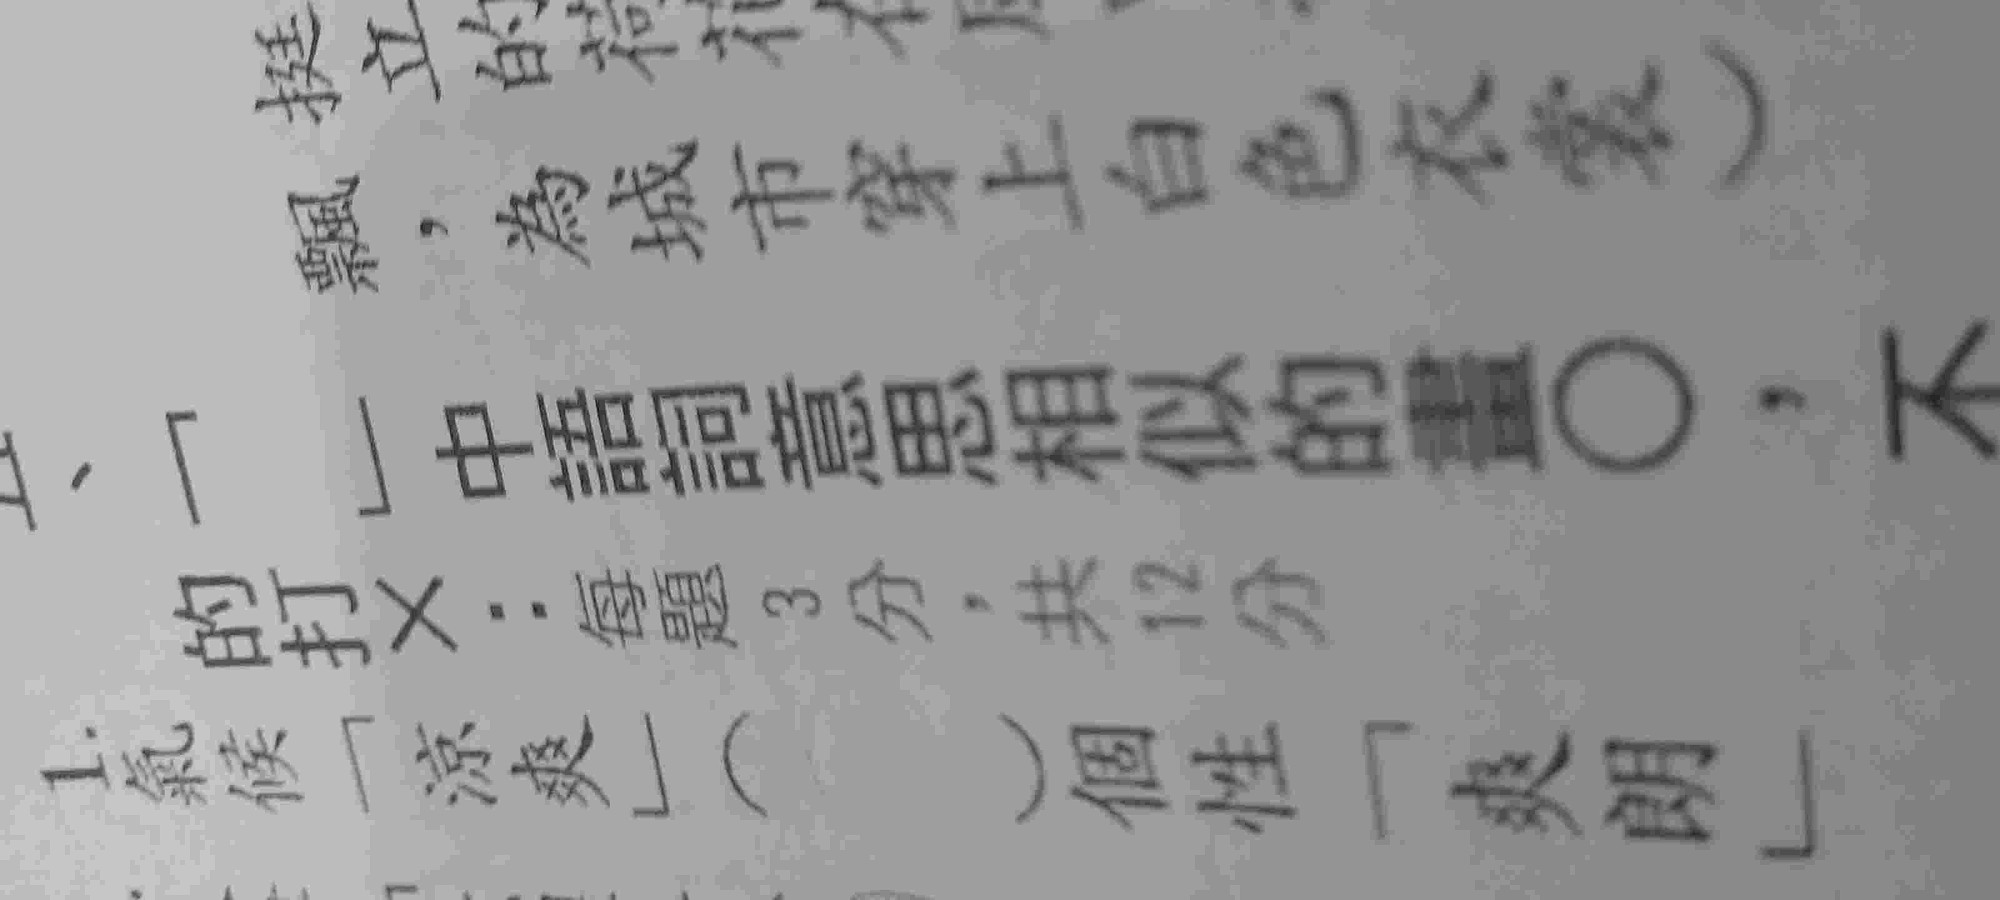 挺立的荷花在
飄，為城市穿上白色衣裳）
五、「　」中語詞意思相似的畫○，不
的打×：每題3分，共12分
1.氣候「涼爽」（　　）個性「爽朗」